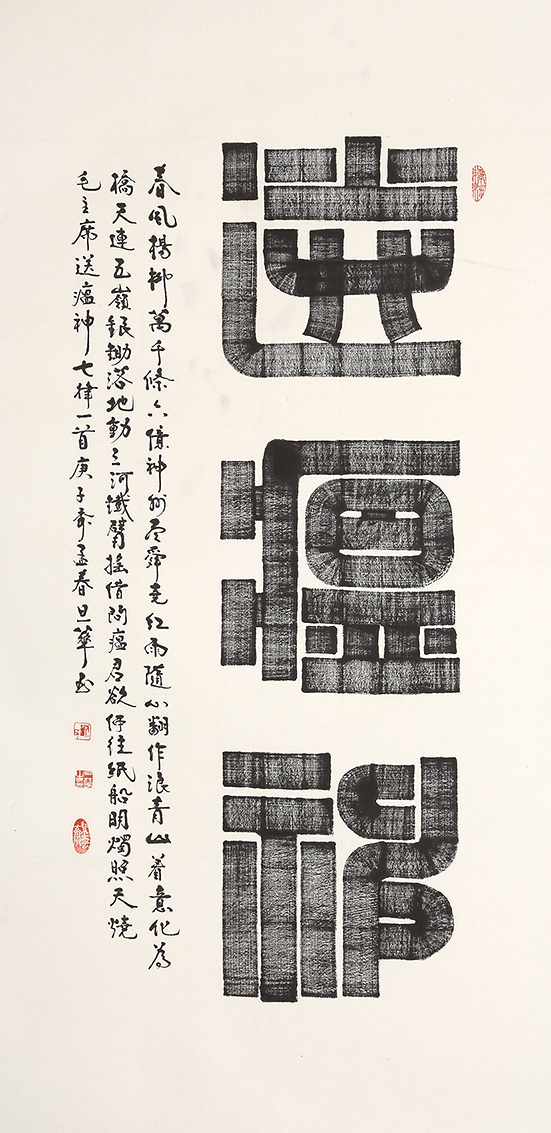 送瘟神
春風楊柳萬千條六億神州尽舜尭紅雨隨心翻作浪青山着意化為
橋天連五嶺銀鋤落地動三河鐵臂搖借問瘟君欲何往紙船明燭照天燒
毛主席送瘟神七律一首庚子年孟春旦華书